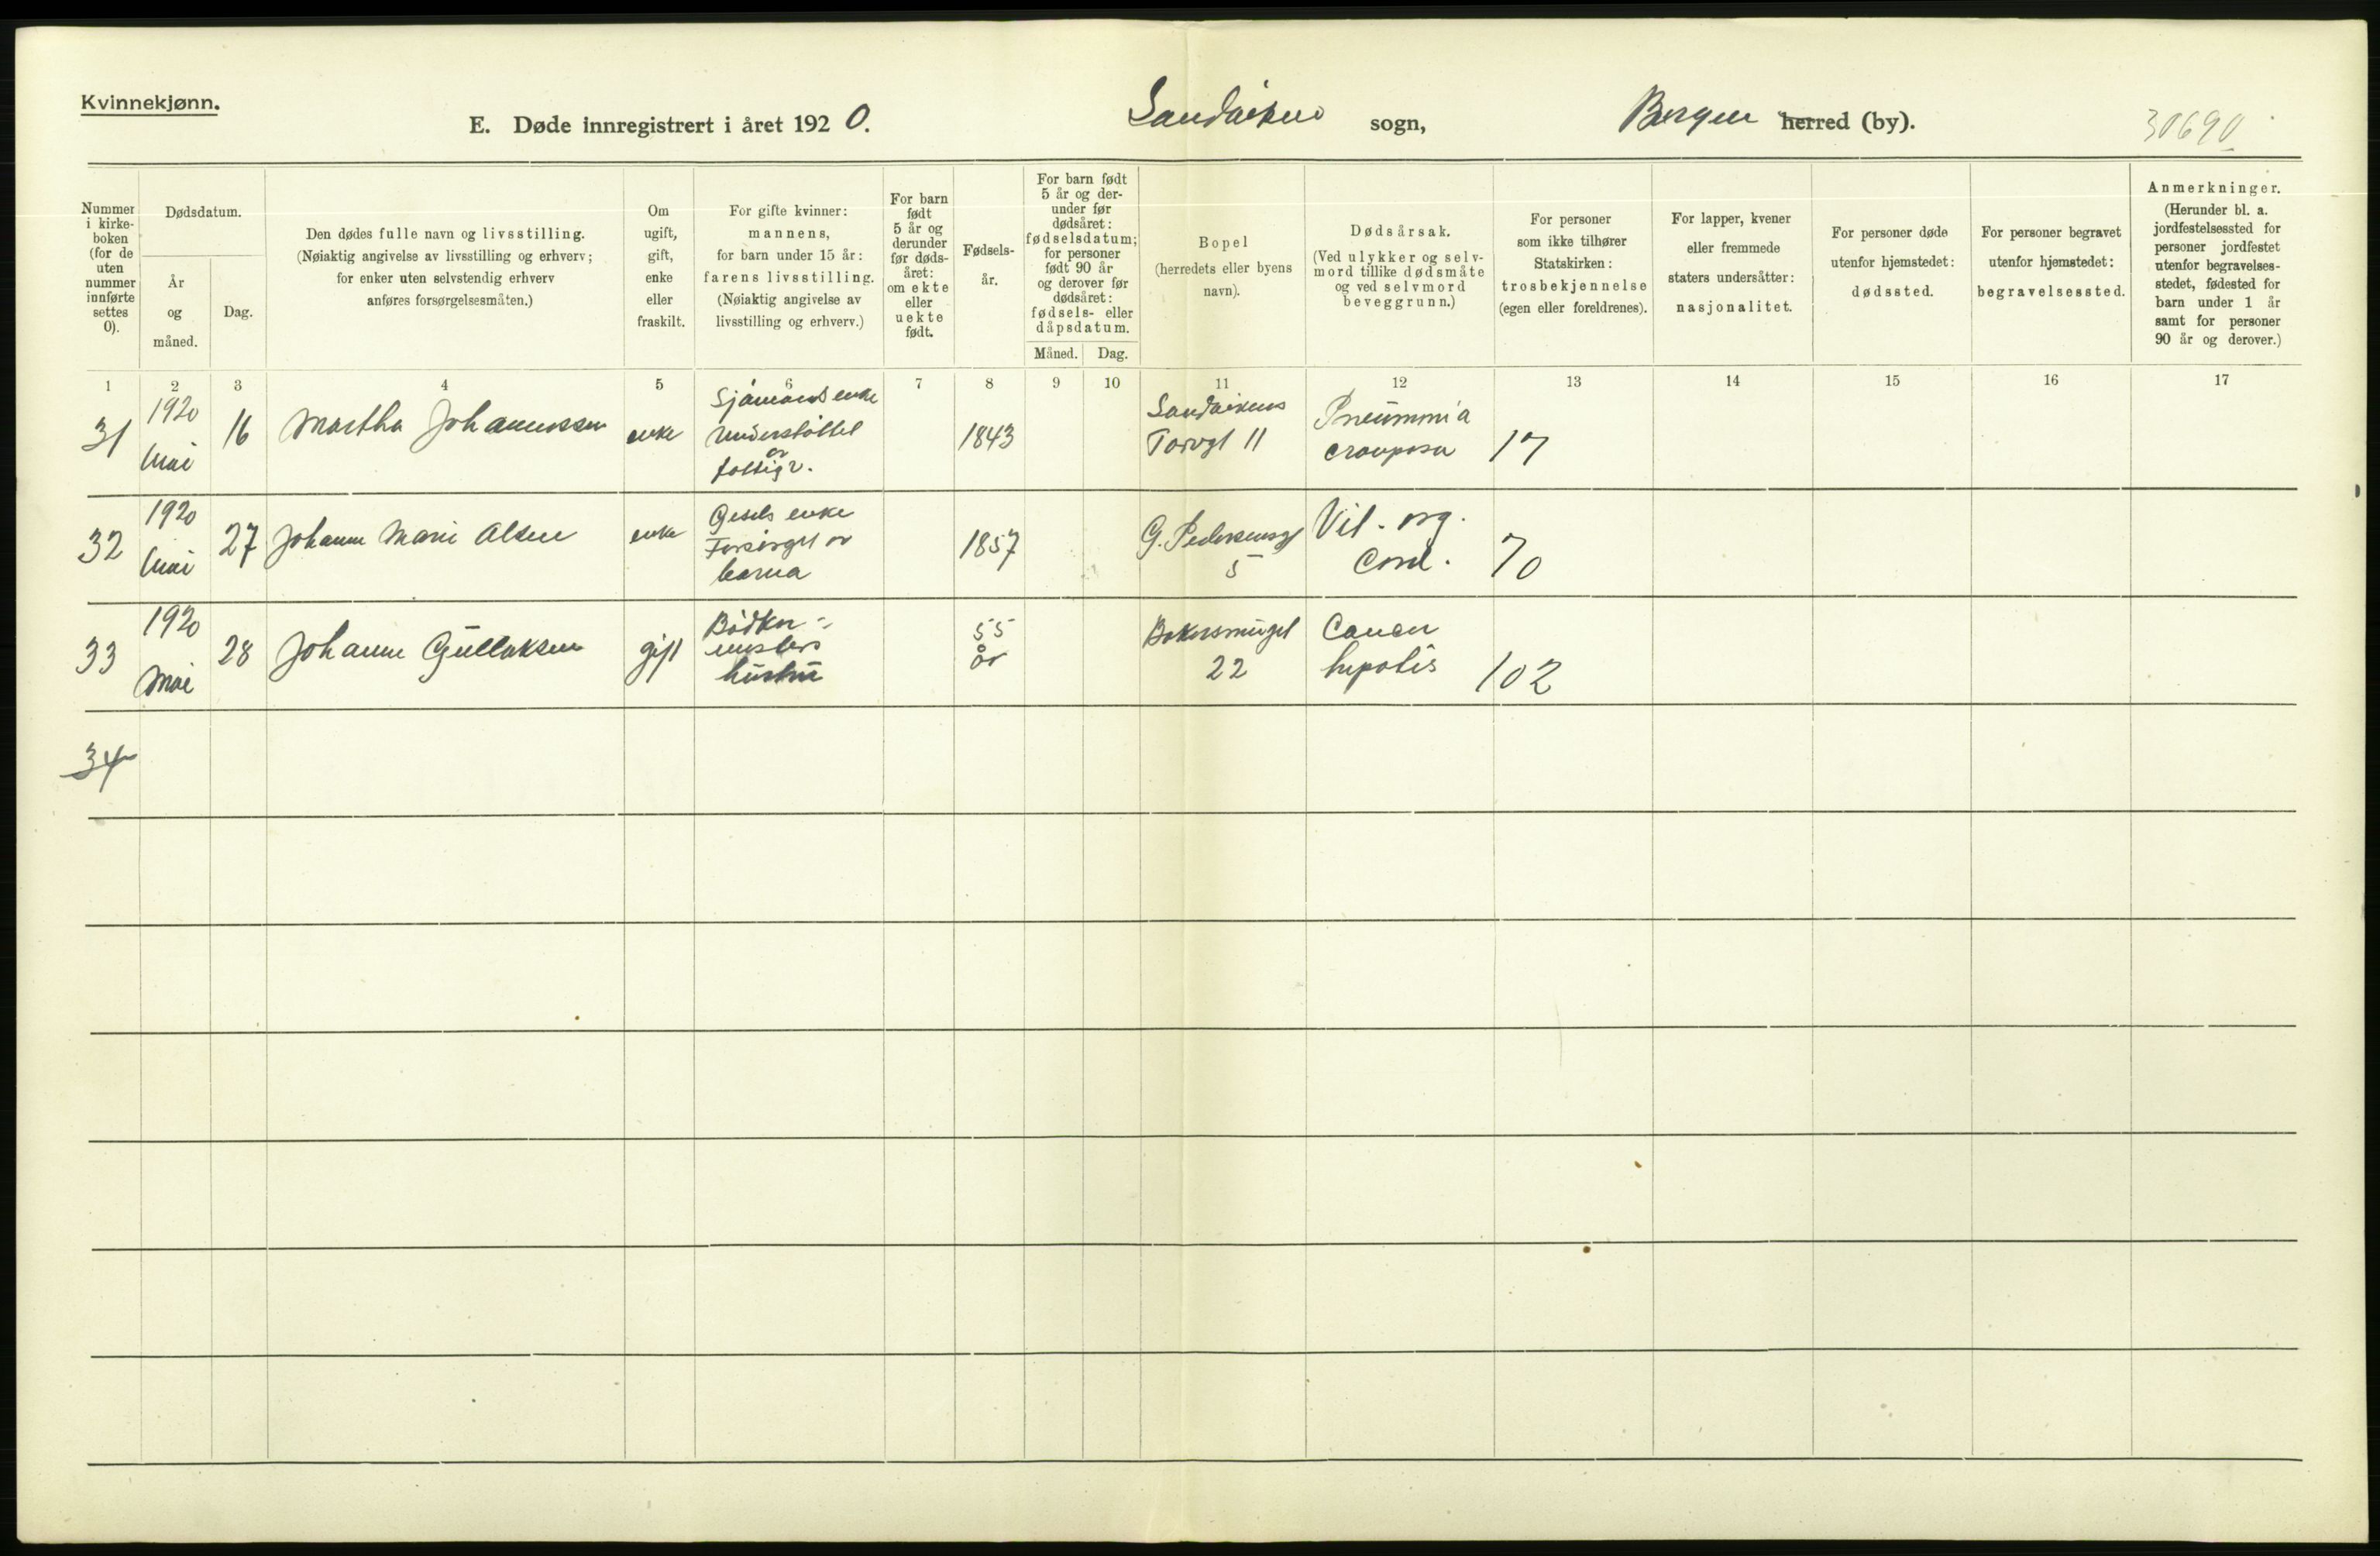 Kvinnekjønn.
E. Døde innregistrert i året 1920. Sandvikens sogn, Bergen herred (by). 30690
Nummer i kirkeboken (for de uten nummer innførte settes 0).
Dødsdatum.
År og måned.
Dag.
Den dødes fulle navn og livsstilling.
(Nøiaktig angivelse av livsstilling og erhverv;
for enker uten selvstendig erhverv
anføres forsørgelsesmåten.)
Om ugift, gift, enke eller fraskilt.
For gifte kvinner:
mannens,
for barn under 15 år:
farens livsstilling.
(Nøiaktig angivelse av
livsstilling og erhverv.)
For barn født 5 år og derunder før dødsåret: om ekte eller uekte født.
Fødselsår.
For barn født
5 år og derunder før
dødsåret:
fødselsdatum;
for personer
født 90 år
og derover før
dødsåret:
fødsels- eller
dåpsdatum.
Måned. Dag.
Bopel
(herredets eller byens
navn).
Dødsårsak.
(Ved ulykker og selvmord tillike dødsmåte
og ved selvmord
beveggrunn.)
For personer
som ikke tilhører
Statskirken:
trosbekjennelse
(egen eller foreldrenes).
For lapper, kvener
eller fremmede
staters undersåtter:
nasjonalitet.
For personer døde
utenfor hjemstedet:
dødssted.
For personer begravet
utenfor hjemstedet:
begravelsessted.
Anmerkninger.
(Herunder bl. a.
jordfestelsessted for
personer jordfestet
utenfor begravelsesstedet, fødested for
barn under 1 år
samt for personer
90 år og derover.)
1 2 3 4 5 6 7 8 9 10 11 12 13 14 15 16 17
31 1920 Mai 16 Martha Johannessen enke Sjömands enke understöttet av fattigv. 1843 Sandvikens Torvgt 11 Pneumonia crouposa 17
32 1920 Mai 27 Johanne Marie Olsen enke Gesels enke Forsörget av barna 1857 G. Pedersensgt 5 Vit. org. Cord. 70
33 1920 Mai 28 Johanne Gullaksen gift Bödker- mesters hustru 55 år 22 Cancer hepatis 102
34